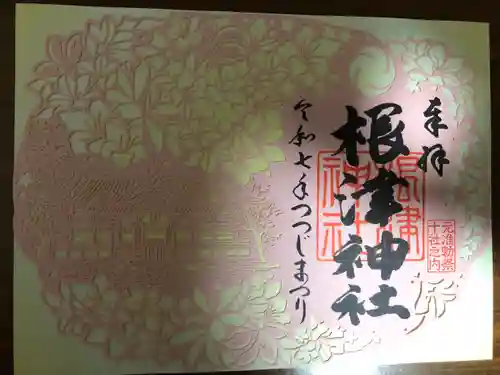 奉拝
根津神社
令和七年つつじまつり
根津神社
元准勅祭
十社之内